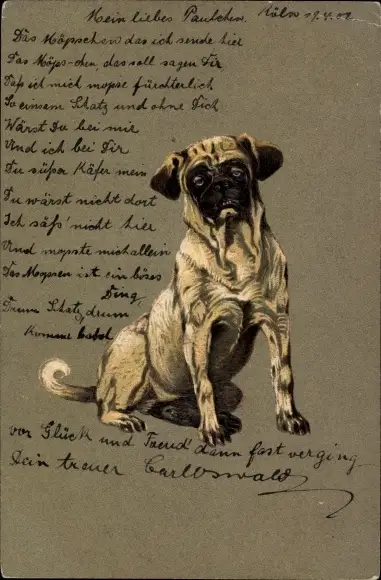 Mein liebes Paulchen. Köln 19.4.01
Das Möpschen das ich sende hier
Das Möps-chen das soll sagen Dir
Daß ich mich mopse fürchterlich
So einsam Schatz und ohne Dich
Wärst Du bei mir
Und ich bei Dir
Du süßer Käfer mein
Du wärst nicht dort
Ich säß' nicht hier
Und mopste mich allein
Das Mopsen ist ein böses
Ding,
Drum Schatz, drum
komme bald
vor Glück und Freud' dann fast verging
Dein treuer Carl Oswald